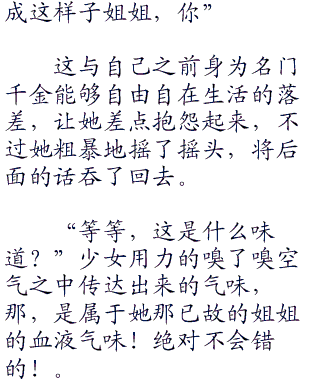 成这样子姐姐，你”
这与自己之前身为名门
千金能够自由自在生活的落
差，让她差点抱怨起来，不
过她粗暴地摇了摇头，将后
面的话吞了回去。
“等等，这是什么味
道？”少女用力的嗅了嗅空
气之中传达出来的气味，
那，是属于她那已故的姐姐
的血液气味！绝对不会错
的！。